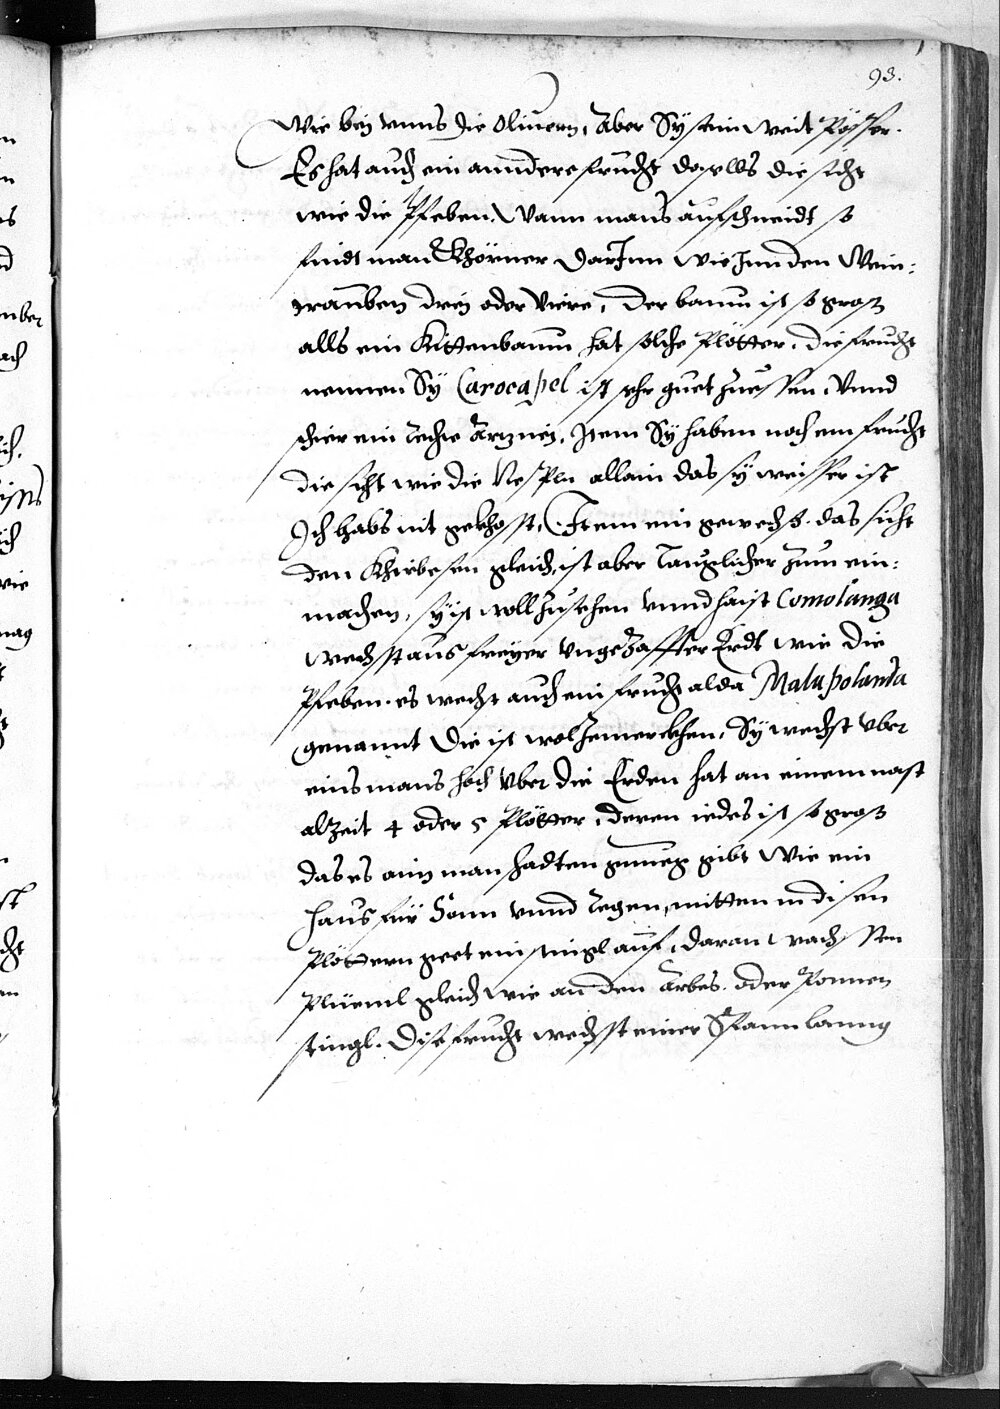 93.
wie bey vnns die Oliuern, Aber Sy sein weit Pösser.
Es hat auch ein anndere frucht daselbs die sicht
wie die Pfeben. Wann mans aufschneidt so
findt man Khörner darInn wie Inn den Wein:
trauben drey oder viere, der baum ist so groß
alls ein Kittenbaum hat solche Plötter, die frucht
nennen Sy Carocapel ist sehr guet zuessen, vnnd
schier ein rechte Artzney. Item Sy haben noch ein frucht
die sicht wie die Nespln allain das sy weisser ist
Ich habs nit gekhosst, Item ein gewechs. das sicht
den Khirbesen gleich, ist aber tauglicher zum ein:
machen, sy ist woll zusehen vnnd haist Comolanga
wechst aus freyer vngeZaffter Erdt wie die
Pfeben. es wechst auch ein frucht alda Malupolanda
genannt die ist wol zemerckhen, Sy wechst vber
eins mans hoch vber die Erden hat an einem nast
alzeit 4 oder 5 Plötter, deren iedes ist so groß
das es aim man schadten genueg gibt wie ein
haus für Sonn vnnd regen, mitten in disen
Plöttern geet ein stingl auf, daran wachssen
Plüeml gleich wie an den Arbes. oder Ponnen
stingl. Dise frucht wechst einer Spann lanng